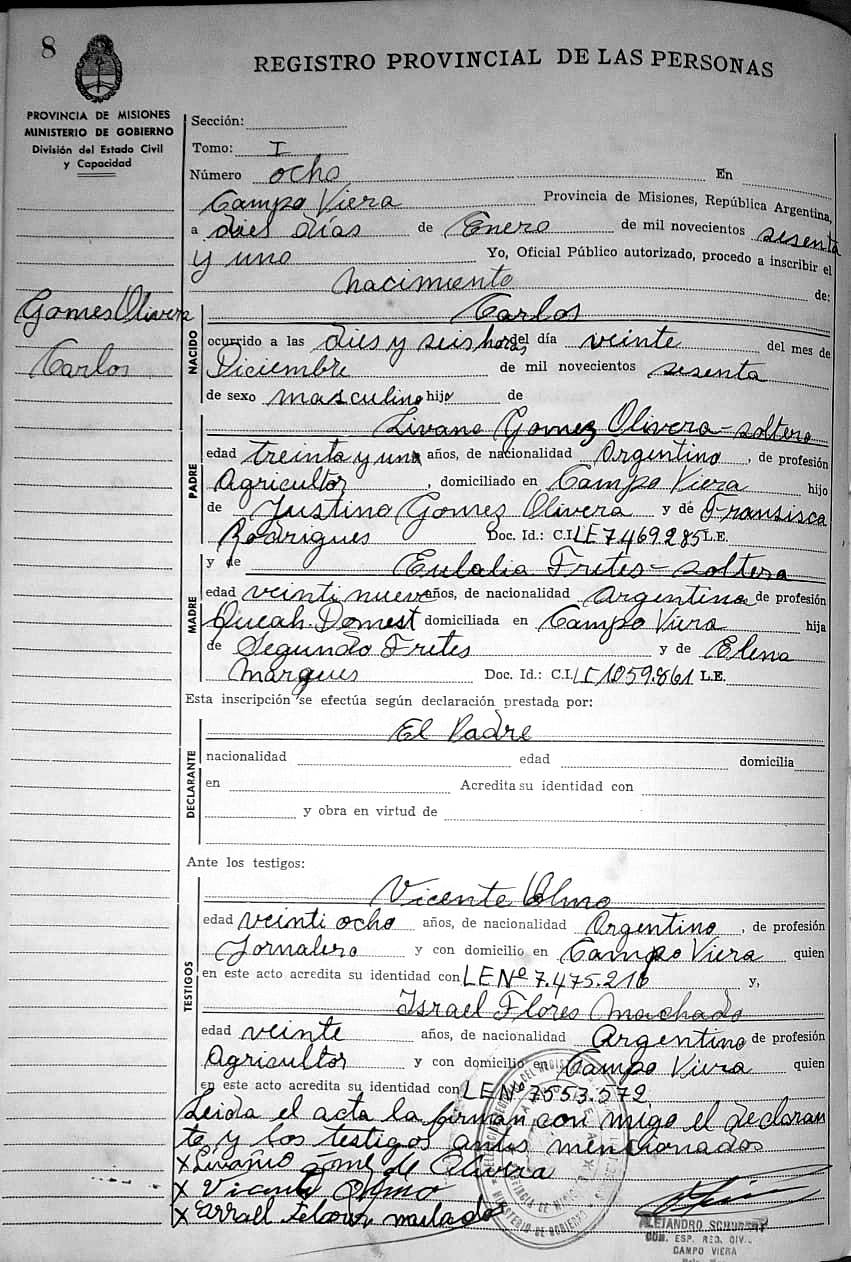 8
REGISTRO PROVINCIAL DE LAS PERSONAS
PROVINCIA DE MISIONES
MINISTERIO DE GOBIERNO
División del Estado Civil
y Capacidad
Gomes Olivera
Carlos
Sección:
Tomo: I
Número ocho En
Campo Viera Provincia de Misiones, República Argentina,
a dies días de Enero de mil novecientos sesenta
y uno Yo, Oficial Público autorizado, procedo a inscribir el
nacimiento de:
NACIDO
Carlos
ocurrido a las dies y seis horas del día veinte del mes de
Diciembre de mil novecientos sesenta
de sexo masculino hijo de
PADRE
Livano Gomez Olivera - soltero
edad treinta y uno años, de nacionalidad Argentino, de profesión
Agricultor, domiciliado en Campo Viera hijo
de Justino Gomes Olivera y de Fransisca
Rodrigues Doc. Id.: C.I. LE 7.469.285 L.E.
MADRE
y de Eulalia Fretes - soltera
edad veinti nueve años, de nacionalidad Argentina de profesión
Queah. Domest domiciliada en Campo Viera hija
de Segundo Fretes y de Elena
Margues Doc. Id.: C.I. LC 1059.861 L.E.
Esta inscripción se efectúa según declaración prestada por:
DECLARANTE
El Padre
nacionalidad edad domicilia
en Acredita su identidad con
y obra en virtud de
Ante los testigos:
TESTIGOS
Vicente Olmo
edad veinti ocho años, de nacionalidad Argentino, de profesión
Jornalero y con domicilio en Campo Viera quien
en este acto acredita su identidad con LE Nº 7.475.216 y,
Israel Flores Machado
edad veinte años, de nacionalidad Argentino de profesión
Agricultor y con domicilio en Campo Viera quien
en este acto acredita su identidad con LE Nº 7553.572
Leida el acta la firman con migo el declaran
te y los testigos antes mencionados
x Livanio Gome de Olivera
x Vicente Olmo
x
ALEJANDRO SCHUBERT
ESP. REG. CIV.
CAMPO VIERA